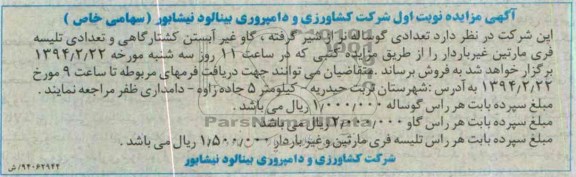 آگهی مزایده نوبت اول شرکت کشاورزی و دامپروری بینالود نیشابور (سهامی خاص)
این شرکت در نظر دارد تعدادی گوساله نر از شیر گرفته ، گاو غیر آبستن کشتارگاهی و تعدادی تلیسه
فری مارتین غیرباردار را از طریق مزایده کتبی که در ساعت ۱۱ روز سه شنبه مورخه ۱۳۹۴/۲/۲۲
برگزار خواهد شد به فروش برساند .متقاضیان می توانند جهت دریافت فرمهای مربوطه تا ساعت ۹ مورخ
۱۳۹۴/۲/۲۲ به آدرس :شهرستان تربت حیدریه - کیلومتر ۵ جاده زاوه - دامداری ظفر مراجعه نمایند .
مبلغ سپرده بابت هر راس گوساله ۱/۰۰۰/۰۰۰ ریال می باشد .
مبلغ سپرده بابت هر راس گاو ۲/۰۰۰/۰۰۰ ریال می باشد
مبلغ سپرده بابت هر راس تلیسه فری مارتین و غیر باردار ۱/۵۰۰/۰۰۰ ریال می باشد .
شرکت کشاورزی و دامپروری بینالود نیشابور
۹۴۰۶۲۹۴۴/ش